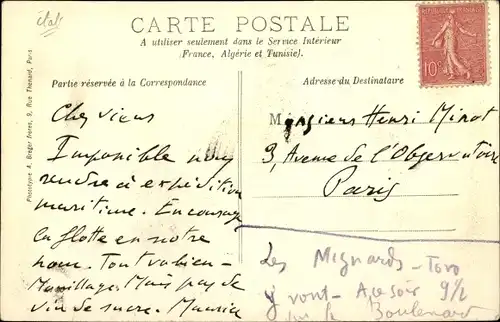 CARTE POSTALE
A utiliser seulement dans le Service Intérieur
(France, Algérie et Tunisie).
Partie réservée à la Correspondance
Adresse du Destinataire
10c
Phototypie A. Breger frères, 9, Rue Thenard, Paris
Cher vieux
Impossible nous
rendre à expédition
maritime. Encourage
la flotte en notre
nom. Tout va bien -
Maquillage. Mais pas de
vin de sucre. Maurice
Monsieur Henri Minot
3, Avenue de l'Observatoire
Paris
Les Mignards - Toro
y vont - Ce soir 9½
sur le Boulevard